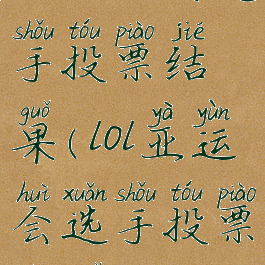 shǒu tóu piào jié
手投票结
guǒ yà yùn
果(lol亚运
huì xuǎn shǒu tóu piào
会选手投票